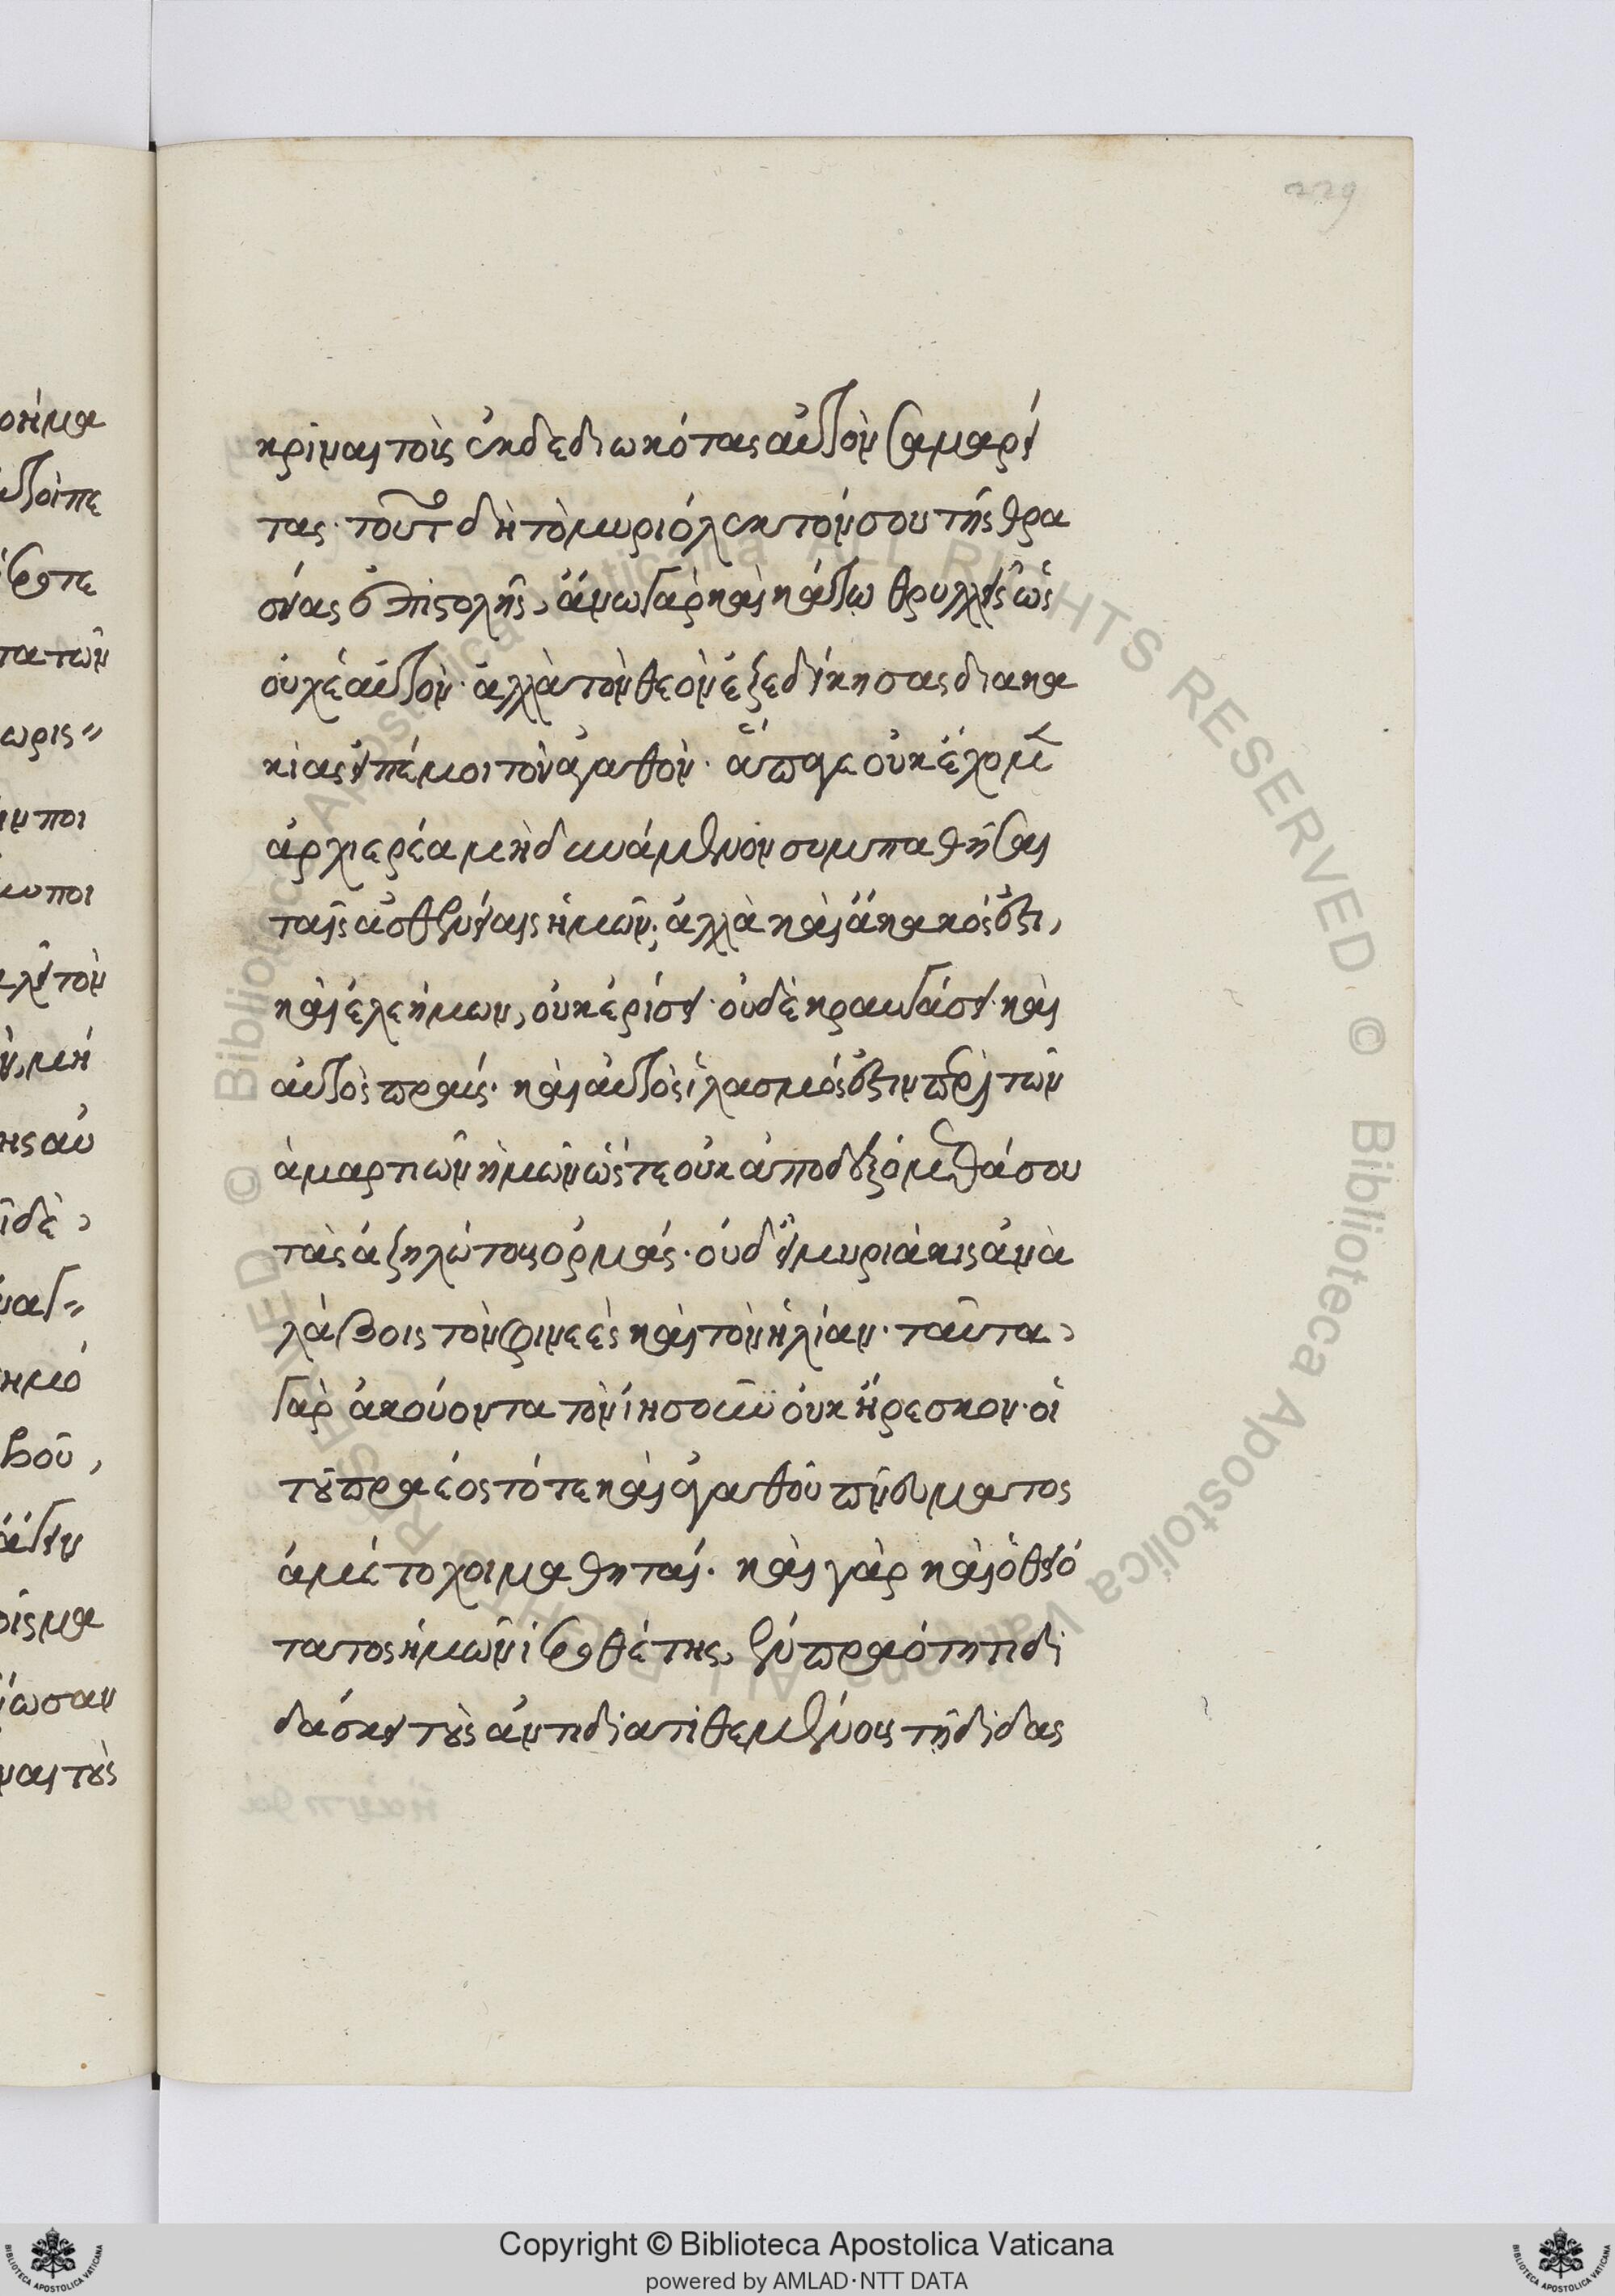 229
κρῖναι τοὺς ἐκδεδιωκότας αὐτὸν σαμαρεί
τας· τοῦτ δὴ τὸ μυριόλεκτόν σου τῆς θρα
σείας ἐπιστολῆς, ἄνω γὰρ καὶ κάτω θρυλλεῖς ὡς
οὐχ ἑαυτὸν· ἀλλὰ τὸν θεὸν ἐξεδίκησας διὰ κα
κίας εἰπέ μοι τὸν ἀγαθὸν· ἄπαγε οὐκ ἔχομεν
ἀρχιερέα μὴ δυνάμενον συμπαθῆσαι
ταῖς ἀσθενείαις ἡμῶν· ἀλλὰ καὶ ἄκακός ἐστι,
καὶ ἐλεήμων, οὐκ ἐρίσει· οὐδὲ κραυγάσει· καὶ
αὐτὸς πραΰς· καὶ αὐτὸς ἱλασμός ἐστιν περὶ τῶν
ἁμαρτιῶν ἡμῶν ὥστε οὐκ ἀποδεξόμεθά σου
τὰς ἀζηλώτους ὁρμάς· οὐδ εἰ μυριάκις ἀνα
λάβοις τὸν φινεὲς καὶ τὸν ἡλίαν· ταῦτα
γὰρ ἀκούοντα τὸν ἰησοῦν οὐκ ἤρεσκον· οἱ
τοῦ πραέος τότε καὶ ἀγαθοῦ πνεύματος
ἀμέτοχοι μαθηταί· καὶ γὰρ καὶ ὁ θειό
τατος ἡμῶν ἱεροθέτης, ἐν πραότητι δι
δάσκει τοὺς ἀντιδιατιθεμένους τῇ διδας
Copyright © Biblioteca Apostolica Vaticana
powered by AMLAD·NTT DATA